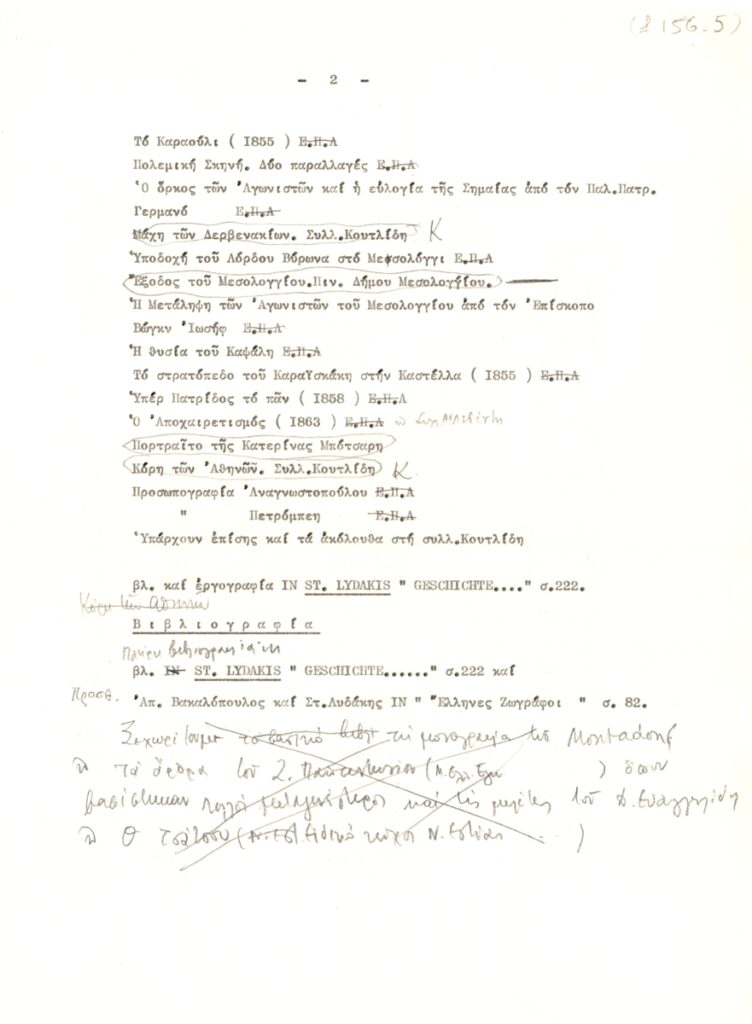 (8156-5)
- 2 -
Τό Καραούλι ( 1855 ) Ε.Π.Α
Πολεμική Σκηνή. Δύο παραλλαγές Ε.Π.Α
Ὁ ὅρκος τῶν Ἀγωνιστῶν καί ἡ εὐλογία τῆς Σημαίας ἀπό τόν Παλ.Πατρ.
Γερμανό Ε.Π.Α
Μάχη τῶν Δερβενακίων. Συλλ.Κουτλίδη Κ
Ὑποδοχή τοῦ Λόρδου Βύρωνα στό Μεσολόγγι Ε.Π.Α
Ἔξοδος τοῦ Μεσολογγίου.Πιν. Δήμου Μεσολογγίου.
Ἡ Μετάληψη τῶν Ἀγωνιστῶν τοῦ Μεσολογγίου ἀπό τόν Ἐπίσκοπο
Βώγκν Ἰωσήφ Ε.Π.Α
Ἡ θυσία τοῦ Καψάλη Ε.Π.Α
Τό στρατόπεδο τοῦ Καραϊσκάκη στήν Καστέλλα ( 1855 ) Ε.Π.Α
Ὑπέρ Πατρίδος τό πᾶν ( 1858 ) Ε.Π.Α
Ὁ Ἀποχαιρετισμός ( 1863 ) Ε.Π.Α
Πορτραῖτο τῆς Κατερίνας Μπότσαρη
Κόρη τῶν Ἀθηνῶν. Συλλ.Κουτλίδη Κ
Προσωπογραφία Ἀναγνωστοπούλου Ε.Π.Α
" Πετρόμπεη Ε.Π.Α
Ὑπάρχουν ἐπίσης καί τά ἀκόλουθα στή συλλ.Κουτλίδη
βλ. καί ἐργογραφία IN ST. LYDAKIS " GESCHICHTE...." σ.222.
Κόρη τῶν Ἀθηνῶν
Βιβλιογραφία
Πλήρη βιβλιογραφία
βλ. IN ST. LYDAKIS " GESCHICHTE......" σ.222 καί
Προσθ. Ἀπ. Βακαλόπουλος καί Στ.Λυδάκης IN " Ἕλληνες Ζωγράφοι " σ. 82.
Ξεχωρίζουμε τή μονογραφία τοῦ Montadon
τά ἄρθρα τοῦ Ζ. Παπαντωνίου ( ) ὅπου
βασίστηκαν πολλά μεταγενέστερα καί τίς μελέτες τοῦ Δ. Ευαγγελίδη
Θ ( Εἰδικό τεῦχος Ν. Εστίας )